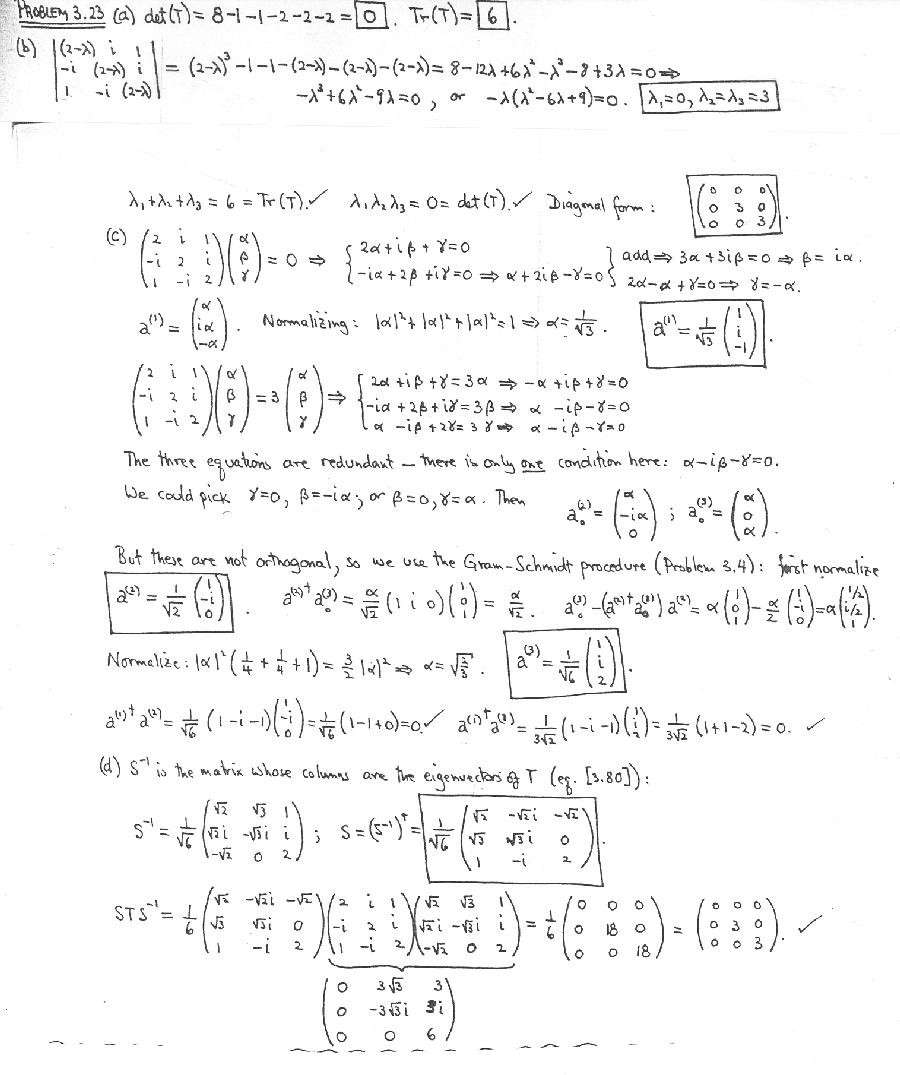 PROBLEM 3.23 (a) det(T) = 8-1-1-2-2-2 = 0. Tr(T) = 6.
(b) |(2-λ) i 1; -i (2-λ) i; 1 -i (2-λ)| = (2-λ)³ -1-1-(2-λ)-(2-λ)-(2-λ) = 8-12λ+6λ²-λ³-8+3λ = 0 ⇒
-λ³+6λ²-9λ=0, or -λ(λ²-6λ+9)=0. λ₁=0, λ₂=λ₃=3
λ₁+λ₂+λ₃ = 6 = Tr(T). ✓ λ₁λ₂λ₃ = 0 = det(T). ✓ Diagonal form: (0 0 0; 0 3 0; 0 0 3).
(c) (2 i 1; -i 2 i; 1 -i 2)(α; β; γ) = 0 ⇒ { 2α+iβ+γ=0; -iα+2β+iγ=0 ⇒ α+2iβ-γ=0 } add ⇒ 3α+3iβ=0 ⇒ β=iα. 2α-α+γ=0 ⇒ γ=-α.
a⁽¹⁾ = (α; iα; -α). Normalizing: |α|²+|α|²+|α|²=1 ⇒ α=1/√3. a⁽¹⁾ = 1/√3 (1; i; -1).
(2 i 1; -i 2 i; 1 -i 2)(α; β; γ) = 3(α; β; γ) ⇒ { 2α+iβ+γ=3α ⇒ -α+iβ+γ=0; -iα+2β+iγ=3β ⇒ α-iβ-γ=0; α-iβ+2γ=3γ ⇒ α-iβ-γ=0
The three equations are redundant – there is only one condition here: α-iβ-γ=0.
We could pick γ=0, β=-iα; or β=0, γ=α. Then a₀⁽²⁾ = (α; -iα; 0); a₀⁽³⁾ = (α; 0; α).
But these are not orthogonal, so we use the Gram-Schmidt procedure (Problem 3.4): first normalize
a⁽²⁾ = 1/√2 (1; -i; 0). a⁽²⁾†a₀⁽³⁾ = α/√2 (1 i 0)(1; 0; 1) = α/√2. a₀⁽³⁾-(a⁽²⁾†a₀⁽³⁾)a⁽²⁾ = α(1; 0; 1) - α/2 (1; -i; 0) = α(1/2; i/2; 1).
Normalize: |α|²(1/4+1/4+1) = 3/2|α|² ⇒ α=√(2/3). a⁽³⁾ = 1/√6 (1; i; 2).
a⁽¹⁾†a⁽²⁾ = 1/√6 (1 -i -1)(1; -i; 0) = 1/√6 (1-1+0)=0. ✓ a⁽¹⁾†a⁽³⁾ = 1/3√2 (1 -i -1)(1; i; 2) = 1/3√2 (1+1-2) = 0. ✓
(d) S⁻¹ is the matrix whose columns are the eigenvectors of T (eq. [3.80]):
S⁻¹ = 1/√6 (√2 √3 1; √2i -√3i i; -√2 0 2); S = (S⁻¹)† = 1/√6 (√2 -√2i -√2; √3 √3i 0; 1 -i 2).
STS⁻¹ = 1/6 (√2 -√2i -√2; √3 √3i 0; 1 -i 2)(2 i 1; -i 2 i; 1 -i 2)(√2 √3 1; √2i -√3i i; -√2 0 2) = 1/6 (0 0 0; 0 18 0; 0 0 18) = (0 0 0; 0 3 0; 0 0 3). ✓
(0 3√3 3; 0 -3√3i 3i; 0 0 6)